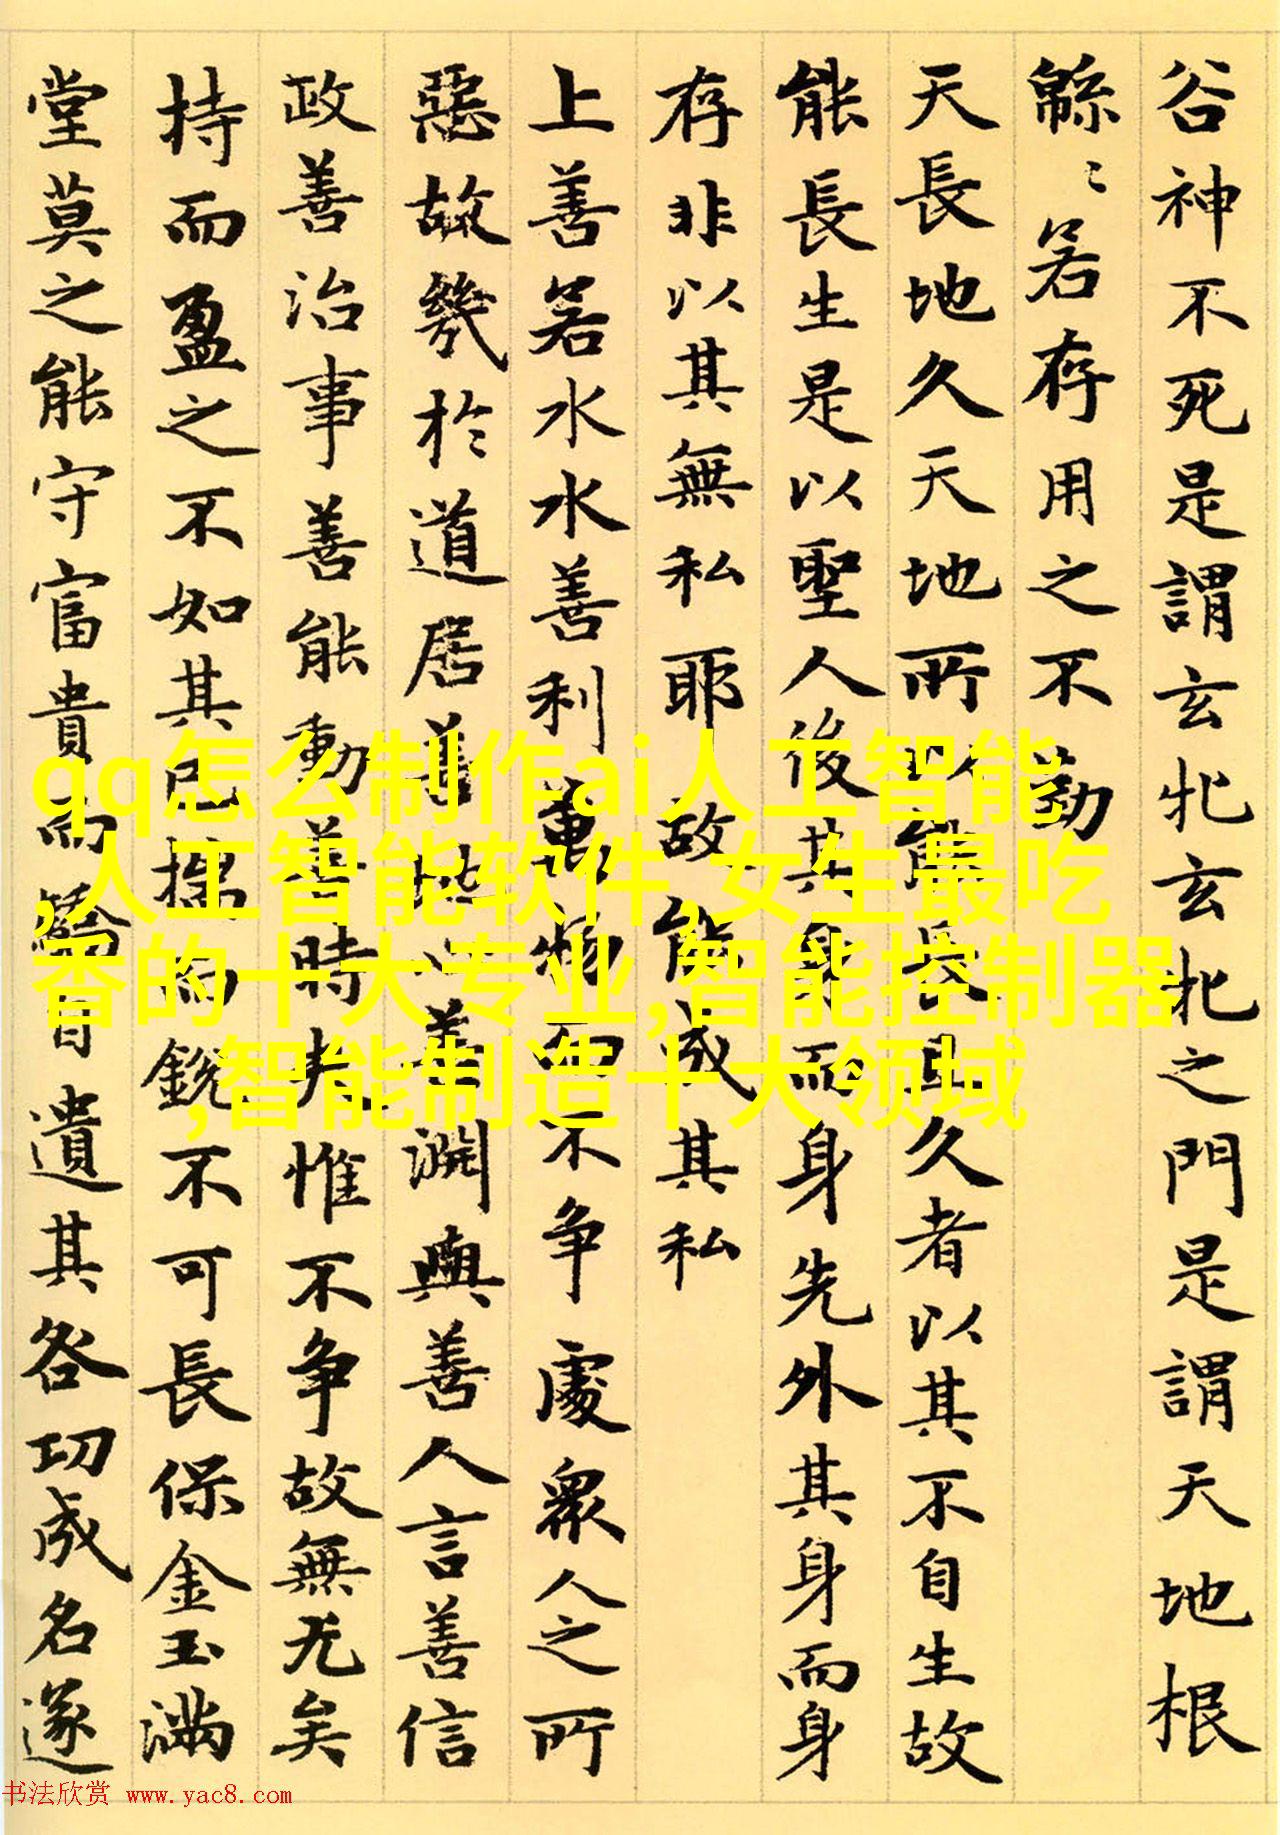 谷神不死是謂玄牝玄牝之門是謂天地根
緜〻若存用之不勤
天長地久天地所以能長且久者以其不自生故
能長生是以聖人後其身而身先外其身而身
存非以其無私耶故能成其私
上善若水水善利萬物而不争處衆人之所
惡故幾於道居善地心善淵與善人言善信
政善治事善能動善時夫惟不争故無尤矣
持而盈之不如其已揣而銳不可長保金玉滿
堂莫之能守富貴而驕自遺其咎功成名遂
qq怎么制作ai人工智能
,人工智能软件,女生最吃
香的十大专业,智能控制器
,智能制造十大领域
书法欣赏 www.yac8.com